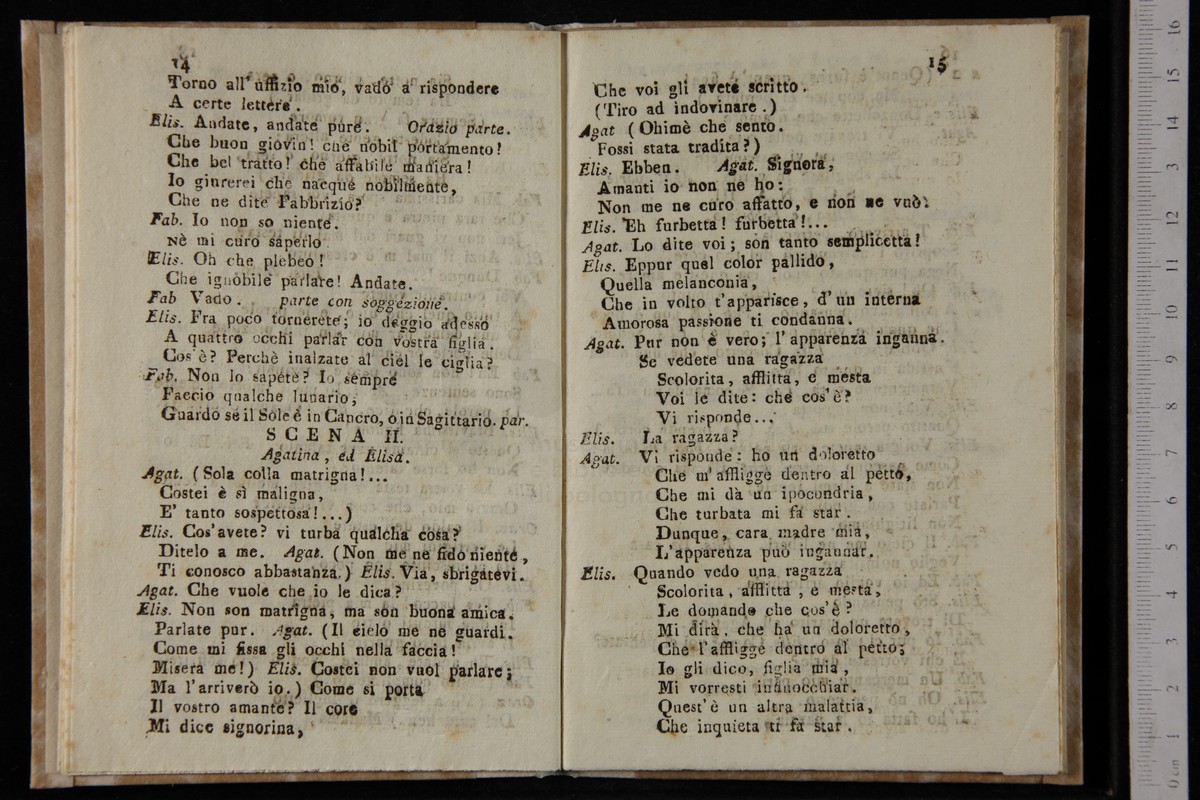 14
Torno all' uffizio mio, vado a rispondere
A certe lettere.
Elis. Andate, andate pure. Orazio parte.
Che buon giovin! che nobil portamento!
Che bel tratto! che affabile maniera!
Io giurerei che nacque nobilmente,
Che ne dite Fabbrizio?
Fab. Io non so niente.
Nè mi curo saperlo.
Elis. Oh che plebeo!
Che ignobile parlare! Andate.
Fab Vado. parte con soggezione.
Elis. Fra poco tornerete; io deggio adesso
A quattro occhi parlar con vostra figlia.
Cos'è? Perchè inalzate al ciel le ciglia?
Fab. Non lo sapete? Io sempre
Faccio qualche lunario,
Guardo se il Sole è in Cancro, o in Sagittario. par.
SCENA II.
Agatina, ed Elisa.
Agat. (Sola colla matrigna!...
Costei è sì maligna,
E' tanto sospettosa!...)
Elis. Cos'avete? vi turba qualcha cosa?
Ditelo a me. Agat. (Non me ne fido niente,
Ti conosco abbastanza.) Elis. Via, sbrigatevi.
Agat. Che vuole che io le dica?
Elis. Non son matrigna, ma son buona amica.
Parlate pur. Agat. (Il cielo me ne guardi.
Come mi fissa gli occhi nella faccia!
Misera me!) Elis. Costei non vuol parlare;
Ma l'arriverò io.) Come si porta
Il vostro amante? Il core
Mi dice signorina,
15
Che voi gli avete scritto.
(Tiro ad indovinare.)
Agat (Ohimè che sento.
Fossi stata tradita?)
Elis. Ebben. Agat. Signora,
Amanti io non ne ho:
Non me ne curo affatto, e non ne vuò.
Elis. Eh furbetta! furbetta!...
Agat. Lo dite voi; son tanto semplicetta!
Elis. Eppur quel color pallido,
Quella melanconia,
Che in volto t'apparisce, d'un interna
Amorosa passione ti condanna.
Agat. Pur non è vero; l'apparenza inganna.
Se vedete una ragazza
Scolorita, afflitta, e mesta
Voi le dite: che cos'è?
Vi risponde...
Elis. La ragazza?
Agat. Vi risponde: ho un doloretto
Che m'affligge dentro al petto,
Che mi dà un ipocondria,
Che turbata mi fa star.
Dunque, cara madre mia,
L'apparenza può ingannar.
Elis. Quando vedo una ragazza
Scolorita, afflitta, e mesta,
Le domando che cos'è?
Mi dirà, che ha un doloretto,
Che l'affligge dentro al petto;
Io gli dico, figlia mia,
Mi vorresti infinocchiar.
Quest'è un altra malattia,
Che inquieta ti fa star.
0 cm 1 2 3 4 5 6 7 8 9 10 11 12 13 14 15 16